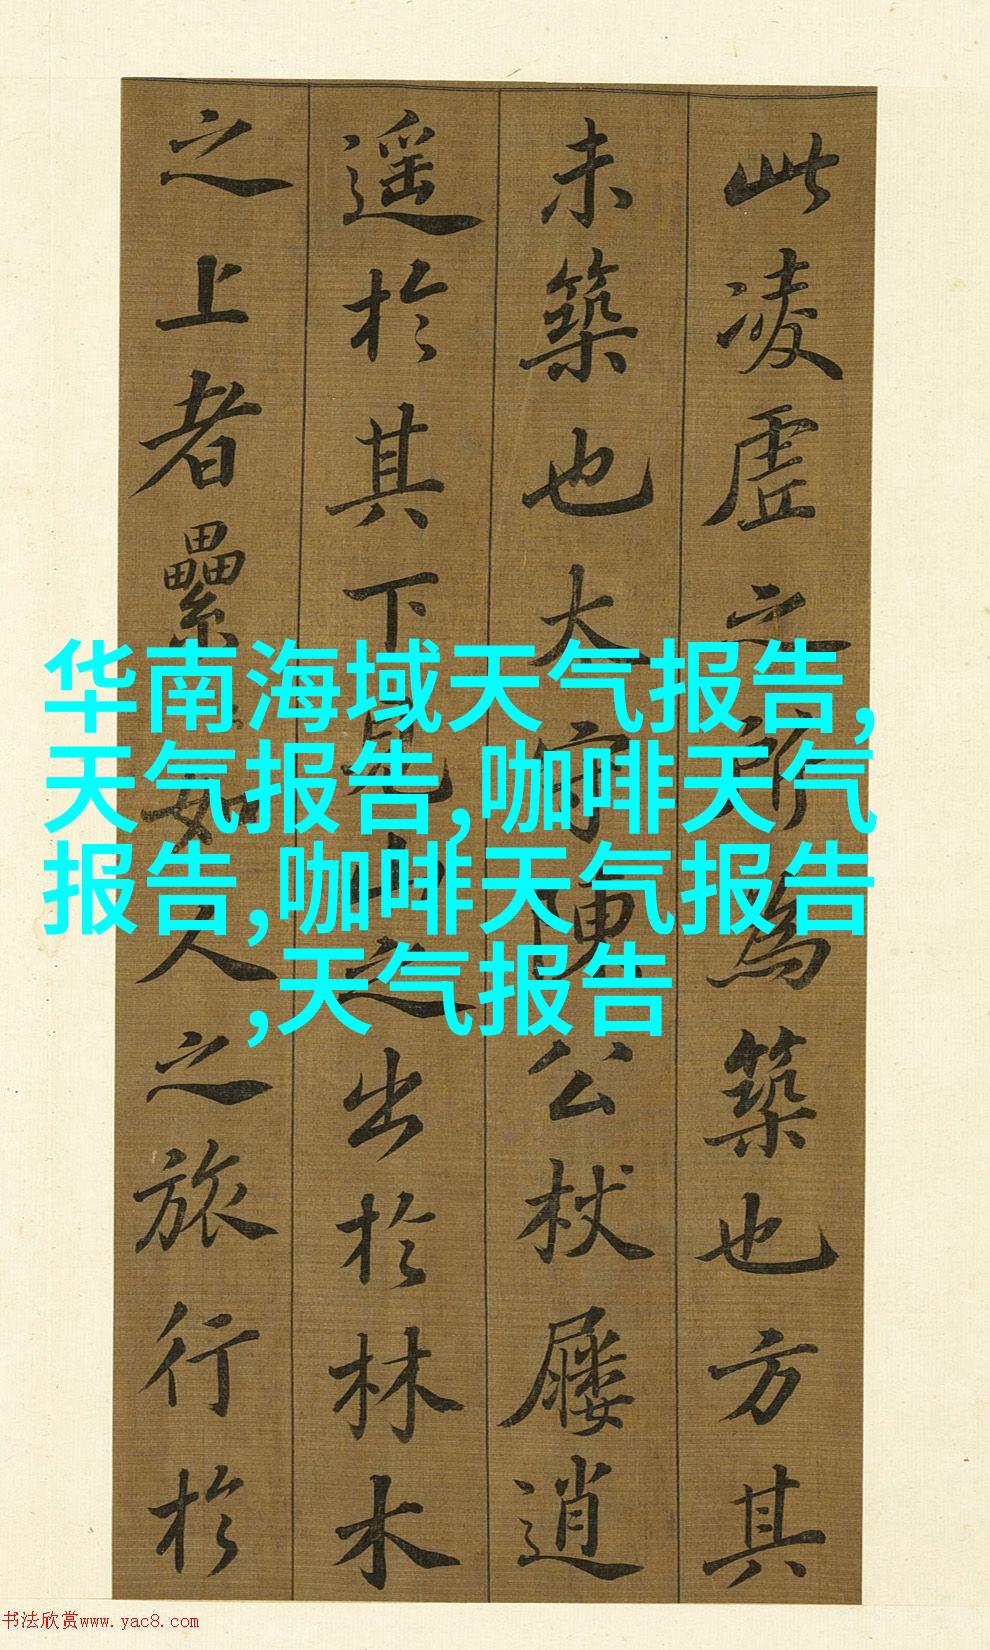 此凌虗之所為築也方其
未築也大守陳公杖屨逍
遥於其下見山之出於林木
之上者纍纍如人之旅行於
华南海域天气报告,
天气报告,咖啡天气
报告,咖啡天气报告
,天气报告
书法欣赏www.yac8.com